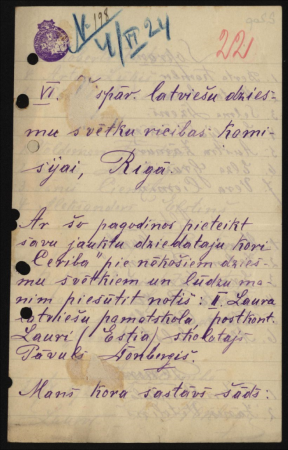 № 198
4/VI 24
22
VI. Vispār. latviešu dzies-
mu svētku rīcības komi-
sijai, Rīgā.
Ar šo pagodinos pieteikt
savu jauktu dziedatāju kori
"Cerība" pie nākošiem dzies-
mu svētkiem un lūdzu ma-
nim piesūtīt notis: II. Laura
latviešu pamatskola postkont.
Lauri / Estia / skolotājs
Pāvuls
Mans kora sastāvs šāds: